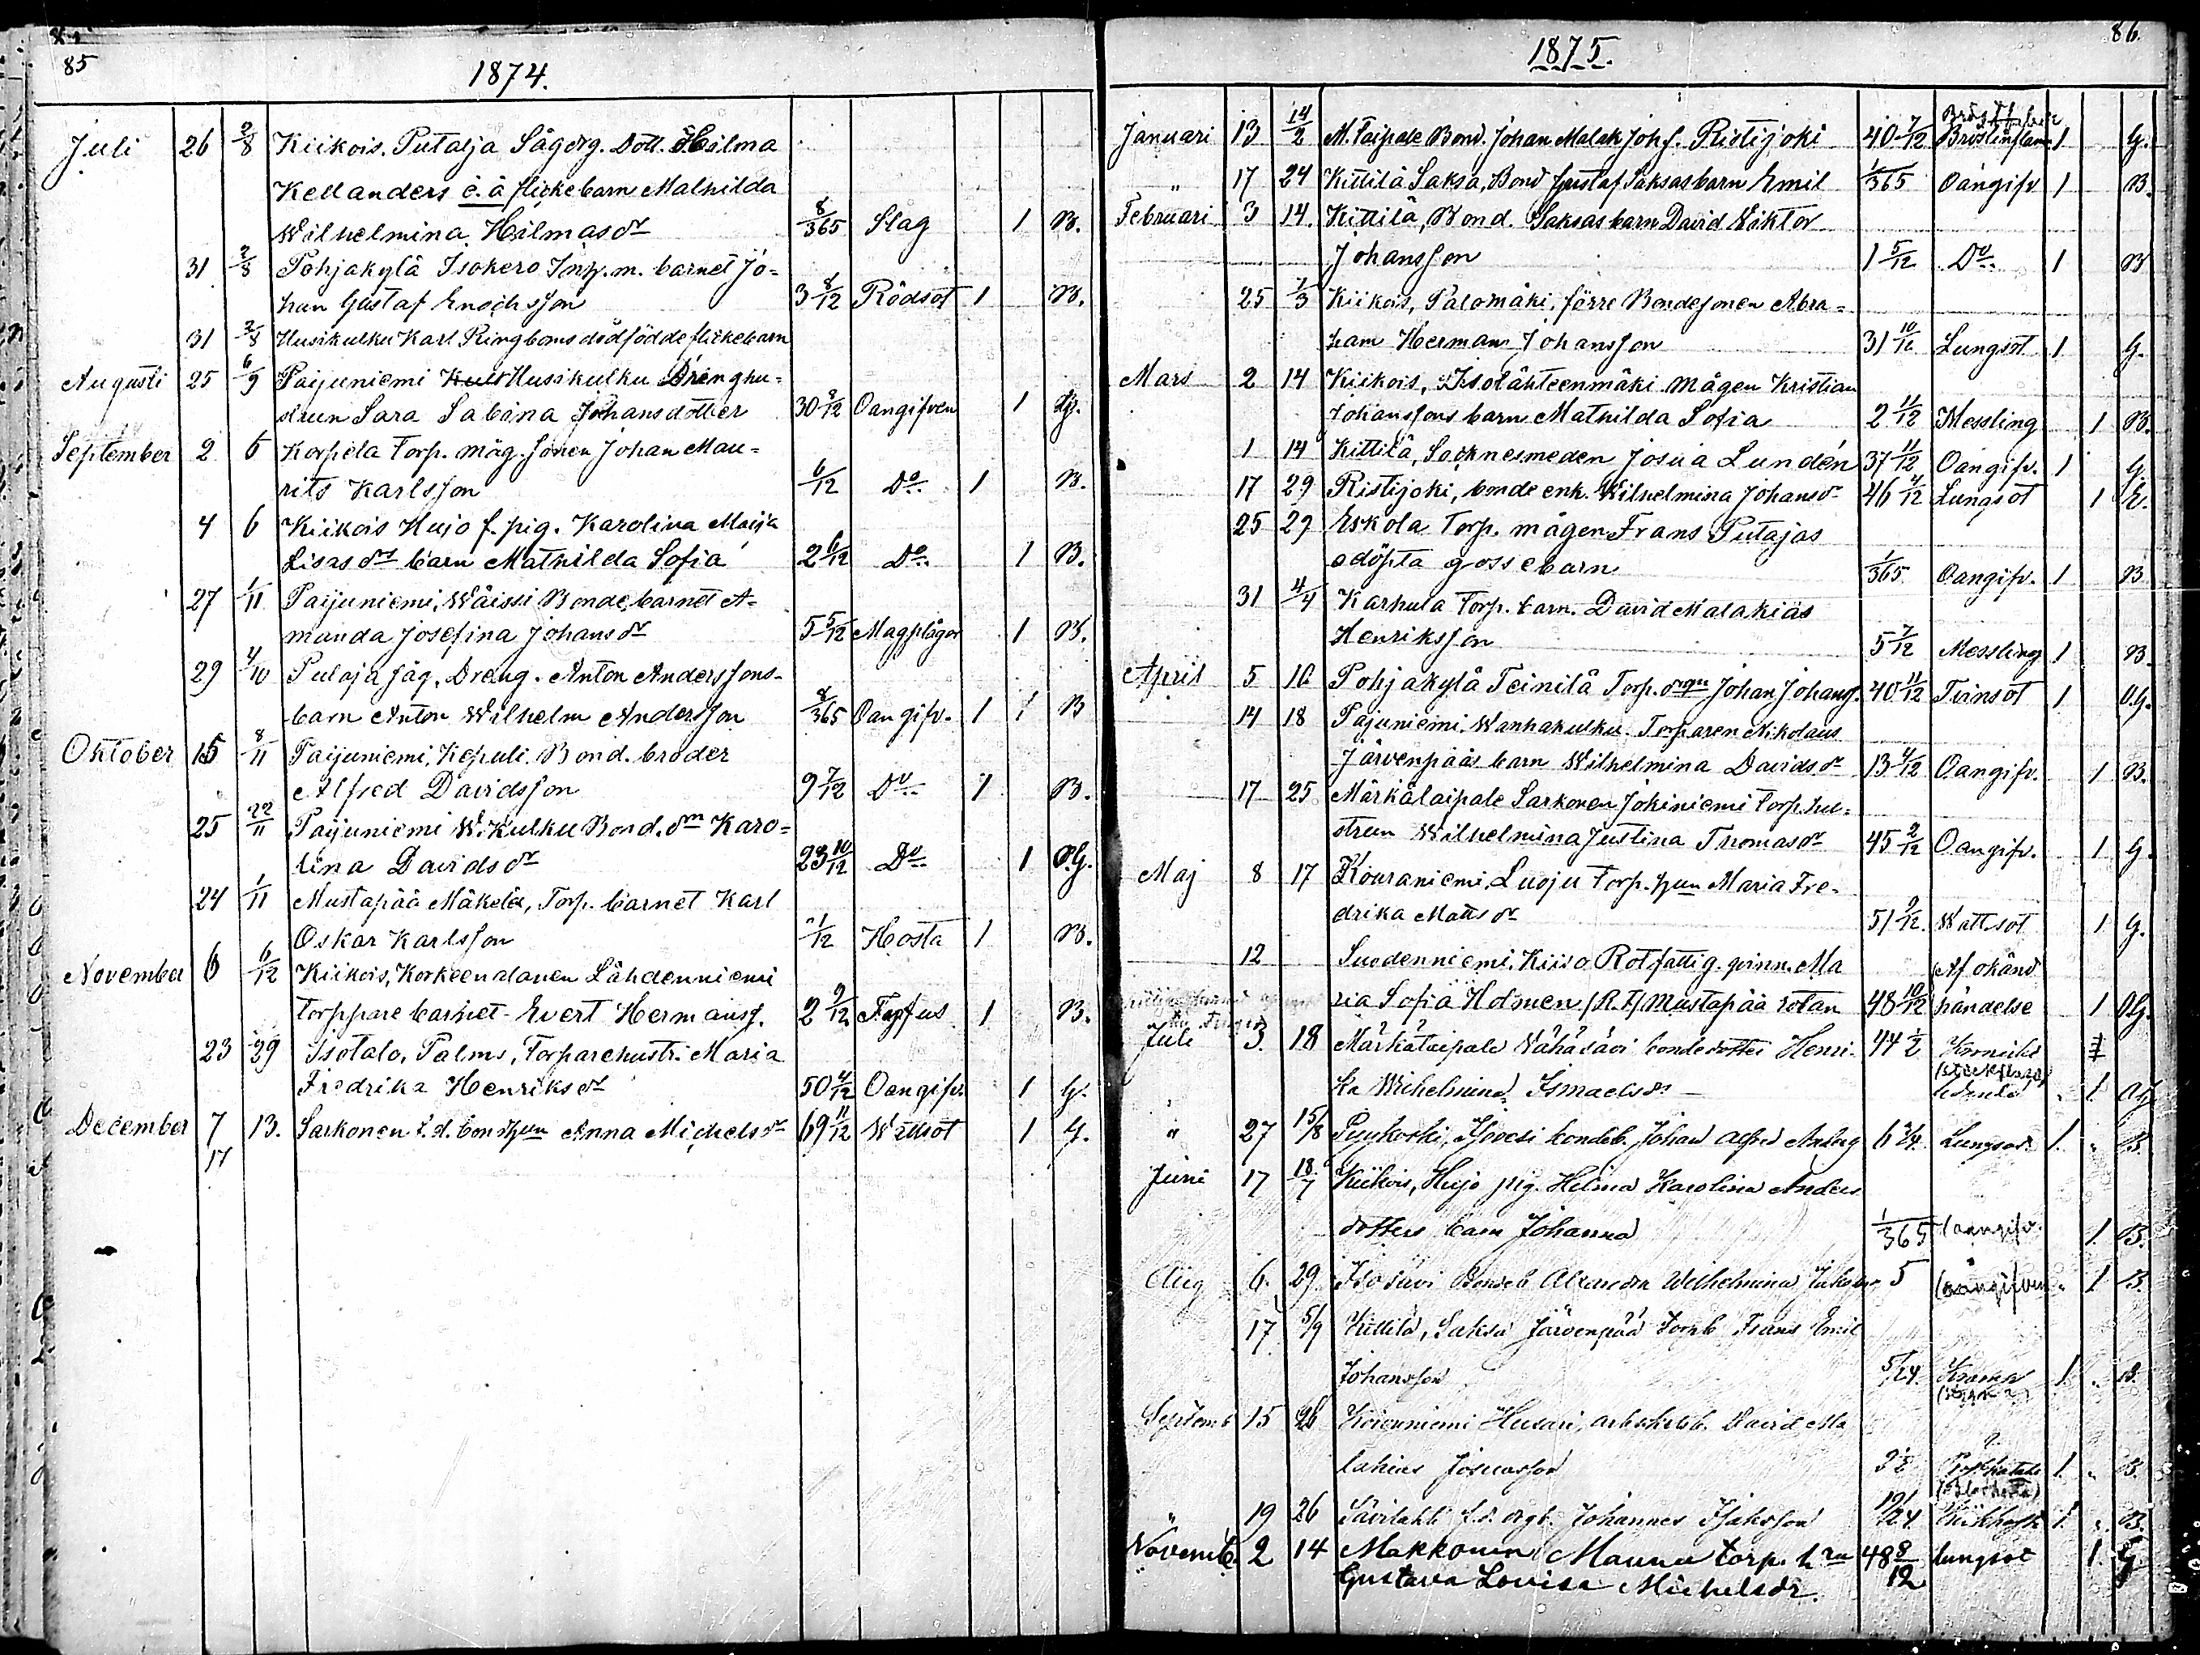 85
1874.
Juli 26 2/8 Kiikois, Putaja Sågdrg. Dott. Hilma
Kellanders o. ä flickebarn Mathilda
Wilhelmina Hilmasdr 8/365 Slag 1 B.
31 2/8 Pohjakylä Isokero Inh. m. barnet Jo-
han Gustaf Enochsson 3 8/12 Rödsot 1 B.
31 2/8 Husikulku Karl Ringboms dödfödde flickebarn
Augusti 25 6/9 Paijuniemi Husikulku Drenghu-
strun Sara Sabina Johansdotter 30 8/12 Oangifven 1 G.
September 2 6 Korpela Torp. måg. sonen Johan Mau-
rits Karlsson 6/12 Do 1 B.
4 6 Kiikois Hujo f. pig. Karolina Maija
Lisas dr barn Mathilda Sofia 2 6/12 Do 1 B.
27 1/11 Paijuniemi, Wäissi Bonde, barnet A-
manda Josefina Johansdr 5 5/12 Magplågor 1 B.
29 4/10 Putaja såg, Dreng. Anton Anderssons-
barn Anton Wilhelm Andersson 8/365 Oangifv. 1 1 B
Oktober 15 8/11 Paijuniemi, Kepuli Bond. broder
Alfred Davidsson 9 7/12 Do 1 B.
25 22/11 Paijuniemi W. Kulku Bond. dm Karo-
lina Davidsdr 23 10/12 Do 1 OG.
24 1/11 Mustapää Mäkelä, Torp. barnet Karl
Oskar Karlsson 1/12 Hosta 1 B.
November 6 6/12 Kiikois, Korkeenalanen Lähdenniemi
Torppare barnet Evert Hermanss. 2 9/12 Tyfus 1 B.
23 29 Isotalo, Palms, Torparehustr. Maria
Fredrika Henriksdr 50 4/12 Oangifv. 1 G.
December 7 13. Sarkonen f. d. bondhun Anna Michelsdr 69 11/12 Wattsot 1 G.
17
86.
1875.
Januari 13 14/2 M. Taipale Bond. Johan Malak Johs. Ristijoki 40 7/12 Bröstinflam 1 G.
" 17 24 Kittilä Saksa, Bond Gustaf Saksas barn Emil 1/365 Oangifv 1 B.
Februari 3 14. Kittilä, Bond. Saksas barn David Wiktor
Johansson 1 5/12 Do 1 B
25 1/3 Kiikois, Palomäki, förre Bondesonen Abra-
ham Herman Johansson 31 10/12 Lungsot 1 G.
Mars 2 14 Kiikois, Isolähteenmäki mågen Kristian
Johanssons barn Mathilda Sofia 2 11/12 Messling 1 B.
1 14 Kittilä, Socknesmeden Josua Lundén 37 11/12 Oangifv. 1 G
17 29 Ristijoki, bonde enk. Wilhelmina Johansdr 46 4/12 Lungsot 1 E.
25 29 Eskola Torp. mågen Frans Putajas
odöpta gossebarn 1/365 Oangifv. 1 B
31 4/4 Karhula Torp. barn. David Malakias
Henriksson 5 7/12 Messling 1 B.
April 5 10 Pohjakylä Teinilä Torp. drgn Johan Johans. 40 11/12 Tvinsot 1 OG.
14 18 Pajuniemi, Wanhakulku. Torparen Nikolaus
Järvenpääs barn Wilhelmina Davidsdr 13 4/12 Oangifv. 1 B.
17 25 Märkätaipale Sarkonen Jokiniemi Torp. hu-
strun Wilhelmina Justina Thomasdr 45 2/12 Oangifv. 1 G.
Maj 8 17 Kouraniemi, Luoju Torp. hun Maria Fre-
drika Mattsdr 51 9/12 Wattsot 1 G.
12 Suodenniemi, Kiiso Rotfattig. qvinn. Ma Af okänd
ria Sofia Holmen (R. F) Mustapää rotan 48 10/12 händelse 1 OG
Juli 3. 18 Märkätaipale Vähäsävi bondedotter Henri- 44 1/2
ka Wilhelmina Ismaelsdr 1 OG
" 27 15/8 bondeb. Johan Alfred 6 3/4 Lungsot. 1. " B
Juni 17 18/7 Kiikois, Hujo pig. Helma Karolina Anders
dotters barn Johanna 1/365 oangifv. 1. B.
Aug 6. 29 Isosävi Bondeb Alexandra Wilhelmina 5 oangifven 1 B.
17 5/9 Kittilä, Saksa Järvenpää Torpb Frans Emil
Johansson 5/24. 1 " B.
Septemb 15 26 Kouraniemi Husari, David Ma
lakias Josuasson 1. " B.
" 19 26 Johannes Isaksson Kikhost 1. " B.
Novemb. 2 14 Makkonen Maunu torp. hru 48 8/12 lungsot 1 G
Gustava Lovisa Michelsdr.